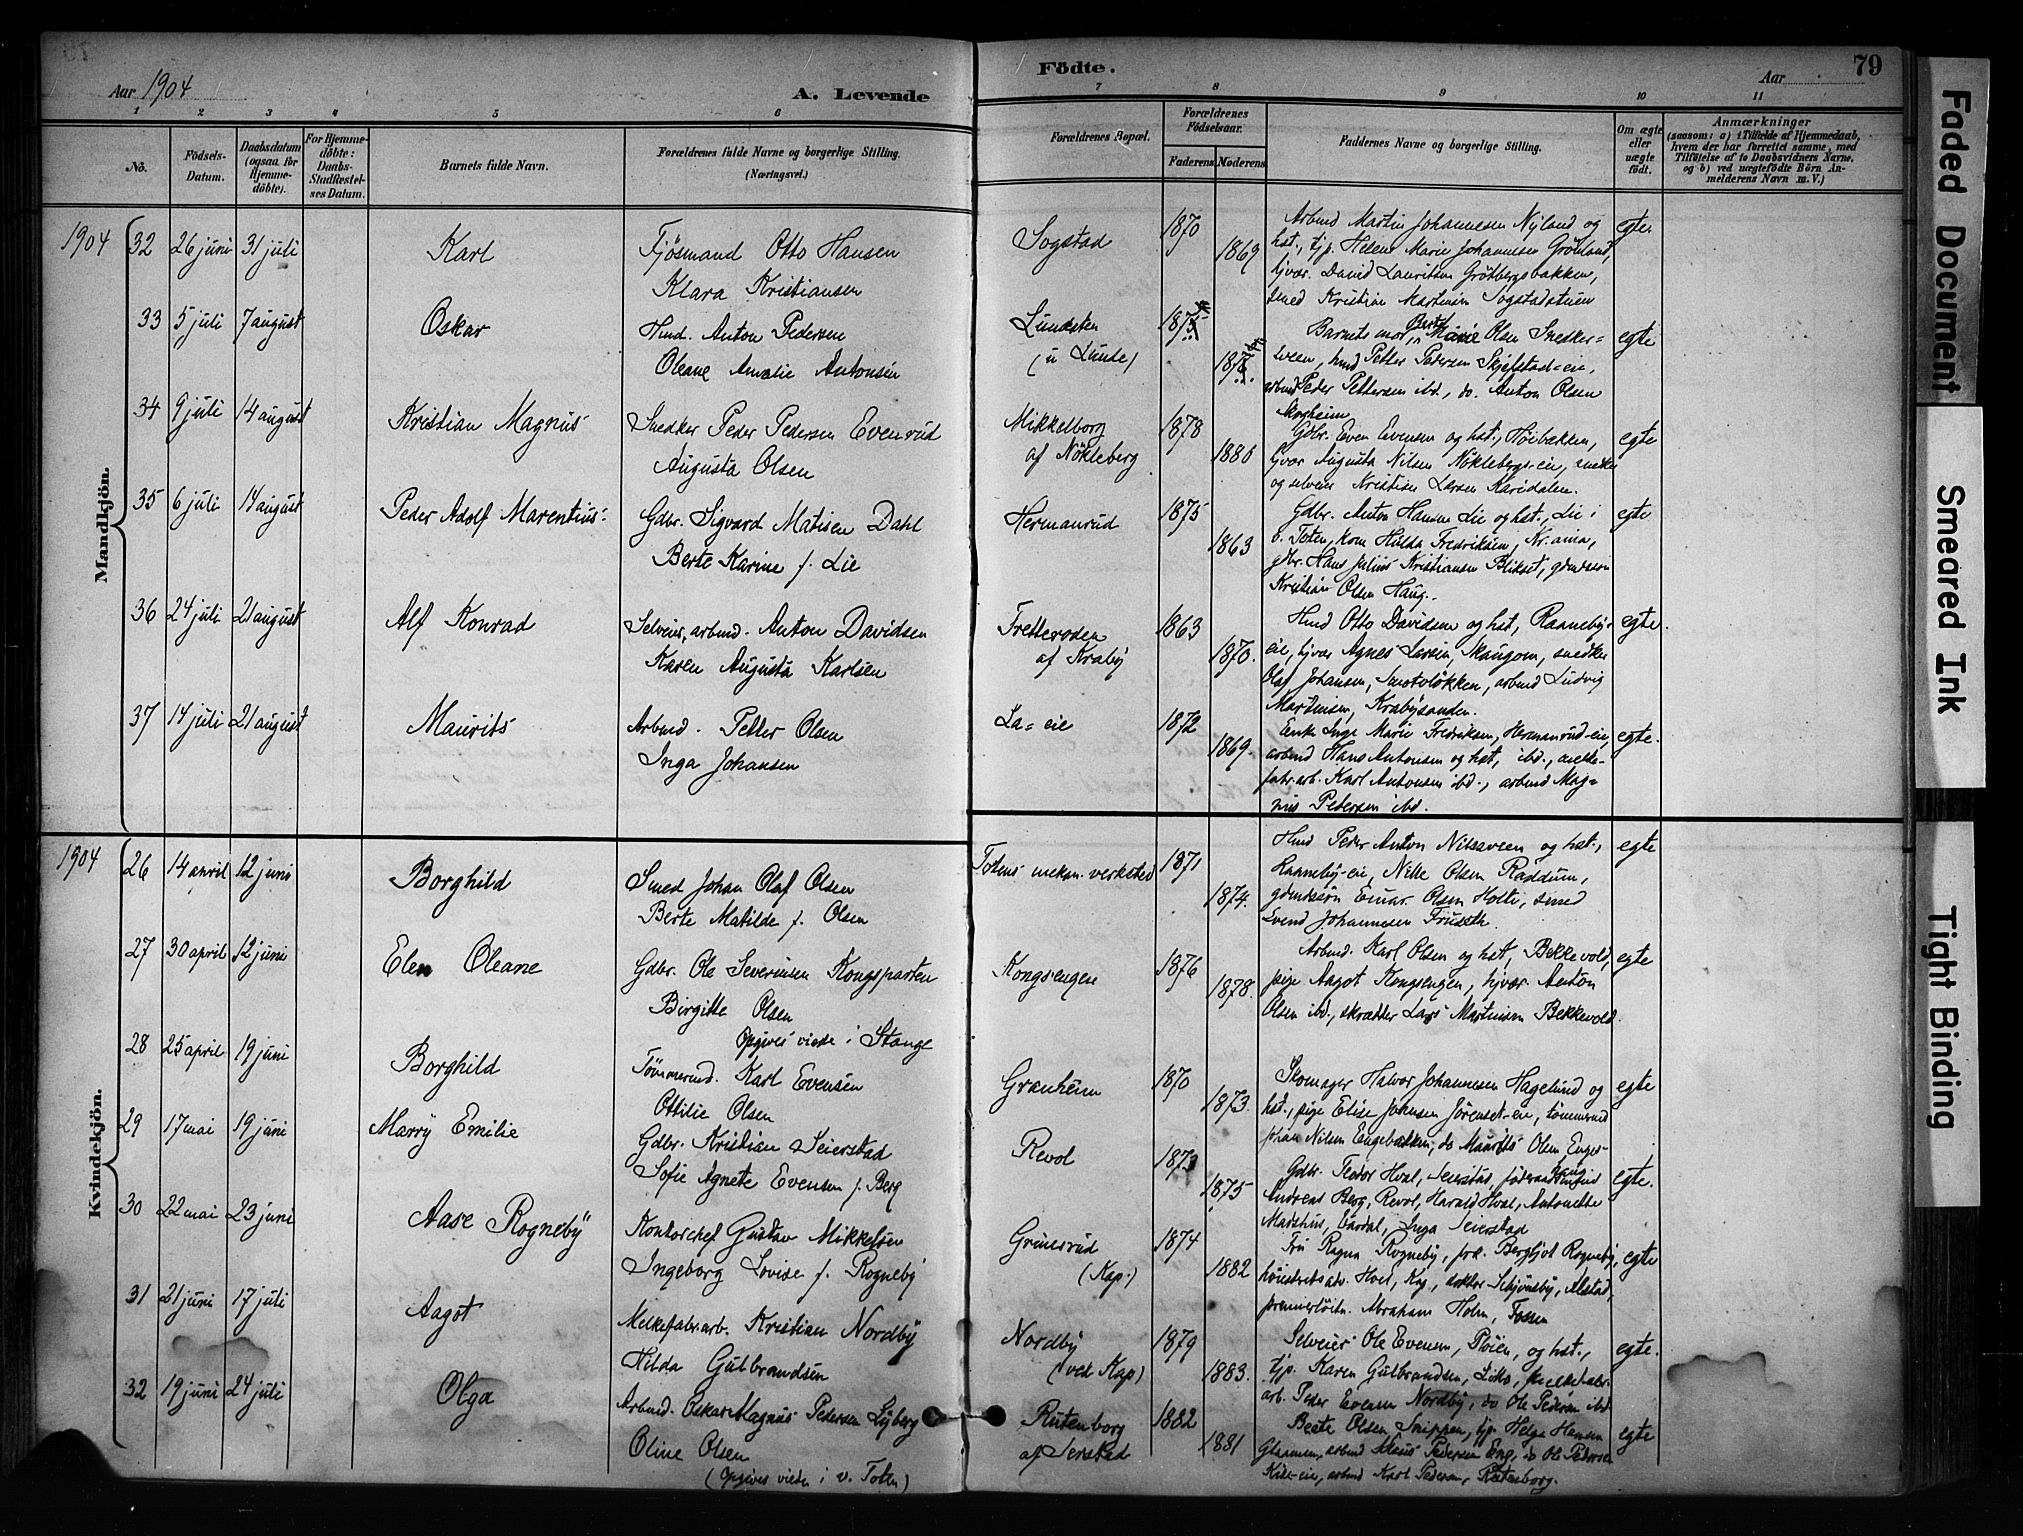 Aar 1904
A. Levende
Födte.
Aar
79
1 2 3 4 5 6 7 8 9 10 11
No.
Födsels-Datum.
Daabsdatum (ogsaa for Hjemme-döbte).
For Hjemme-döbte: Daabs-Stadfæstel-ses Datum.
Barnets fulde Navn.
Forældrenes fulde Navne og borgerlige Stilling. (Næringsvei.)
Forældrenes Bopæl.
Forældrenes Födselsaar.
Faderens Moderens
Faddernes Navne og borgerlige Stilling.
Om ægte eller uægte födt.
Anmærkninger
(saasom: a) i Tilfælde af Hjemmedaab, hvem der har forrettet samme, med Tilföielse af to Daabsvidners Navne, og b) ved uægtefödte Börn An-melderens Navn m. V.)
Mandkjön.
1904 32 26 juni 31 juli Karl
Fjösmand Otto Hansen
Klara Kristiansen
Sogstad 1870 1869
Arbmd Martin Johannesen Nyland og
hst., tjp. Helene Marie Johannesen Grönland,
tjvær. David Lauritsen Grötbergsbakken,
smed Kristian Martinsen Sogstadstuen
egte
33 5 juli 7 august Oskar
Hmd. Anton Pedersen
Oleane Amalie Antonsen
Lundsten
(u Lunde)
1875 1876
Barnets mor, Berte Marie Olsen Snedker=
sveen, hmd Petter Pedersen Skjelstad-eie,
arbmd Peder Pettersen ibd., do. Anton Olsen
Skogheim
egte
34 9 juli 14 august Kristian Magnus
Snedker Peder Pedersen Evenrud
Augusta Olsen
Mikkelborg
af Nökleberg
1878 1886
Gdbr. Even Evensen og hst., Höibakken,
tjvær Augusta Nilsen Nöklebergs-eie, snedker
og selveier Kristian Larsen Karidalen.
egte
35 6 juli 14 august Peder Adolf Marentius
Gdbr. Sigvard Matisen Dahl
Berte Karine f. Lie
Hermanrud 1875 1863
Gdbr. Anton Hansen Lie og hst., Lie i
ö. Toten, kone Hulda Fredriksen, Kr.ania,
gbr. Hans Julius Kristiansen Blikset, gdmdssön
Kristian Olsen Haug.
egte
36 24 juli 21 august Alf Konrad
Selveier, arbmd. Anton Davidsen
Karen Augusta Karlsen
Fretteroden
af Kraby
1863 1870.
Hmd Otto Davidsen og hst, Raaneby-
eie, tjvær Agnes Larsen, Skaugom, snedker
Olaf Johansen, Smotvlökken, arbmd Ludvig
Martinsen, Krabysanden.
egte.
37 14 juli 21 august Maurits
Arbmd. Petter Olsen
Inga Johansen
La=eie 1872 1869.
Enke Inge Marie Fredriksen, Hermanrud-eie,
arbmd Hans Antonsen og hst, ibd., melke-
fabr.arb. Karl Antonsen ibd., arbmd Mag=
nus Pedersen ibd.
egte.
Kvindekjön.
1904 26 14 april 12 juni Borghild
Smed Johan Olaf Olsen
Berte Matilde f. Olsen
Totens mekan. verksted 1871 1874.
Hmd Peder Anton Nilsaveen og hst.,
Raaneby-eie, Nille Olsen Raddum,
gdmdssön Einar Olsen Holte, smed
Svend Johannesen Fruseth.
egte
27 30 april 12 juni Elen Oleane
Gdbr. Ole Severinsen Kongsparten
Birgitte Olsen
Kongsengen 1876 1878.
Arbmd. Karl Olsen og hst, Bekkevold,
pige Aagot Kongsengen, tjvær. Anton
Olsen ibd., skrædder Lars Martinsen Bekkevold.
egte
28 25 april 19 juni Borghild
Opgives viede i Stange
Tömmermd. Karl Evensen
Ottilie Olsen
Granheim 1870 1873.
Skomager Halvor Johannesen Hagelund og
hst., pige Elise Johnsen Jörenset-eie, tömmermd
Johan Nilsen Engebakken, do Maurits Olsen Enges-
haug
egte
29 17 mai 19 juni Marry Emilie
Gdbr. Kristian Seierstad
Sofie Agnete Evensen f. Berg
Revol 1873 1875
Gdbr. Teodor Hval, Seierstad,
Andreas Berg, Revol, Harald Hval, Antonette
Mathius, Gardal, Inga Seierstad
egte.
30 22 mai 23 juni Aase Rogneby
Kontorchef Gustav Mikkelsen
Ingeborg Lovise f. Rogneby
Grimsrud
(Kap.)
1874 1882
Fru Ragna Rogneby, frk. Bergljot Rogneby,
Hoel, Kap, doktor Schjönsby, Alstad,
premierlöitn. Abraham Holm, Fossen
egte
31 21 juni 17 juli Aagot
Melkefabr.arb. Kristian Nordby
Hilda Gulbrandsen
Nordby
(ved Kap)
1879 1883.
Selveier Ole Evensen, Plöien, og hst.,
tjp. Karen Gulbrandsen, Liks, melkefabr.
arb. Peder Evensen Nordby, do Ole Pedersen ibd
egte.
32 19 juni 24 juli Olga
Arbmd. Oskar Magnus Pedersen Lyberg
Oline Olsen
(Opgives viede i v. Toten)
Rutenborg
af Seierstad
1882 1881
Beate Olsen Snippen, tjp. Helga Hansen
Glaamen, arbmd Klaus Pedersen Eng, do Ole Pedersen
Kise-eie, arbmd Karl Pedersen, Rutenborg.
egte
Faded Document
Smeared Ink
Tight Binding